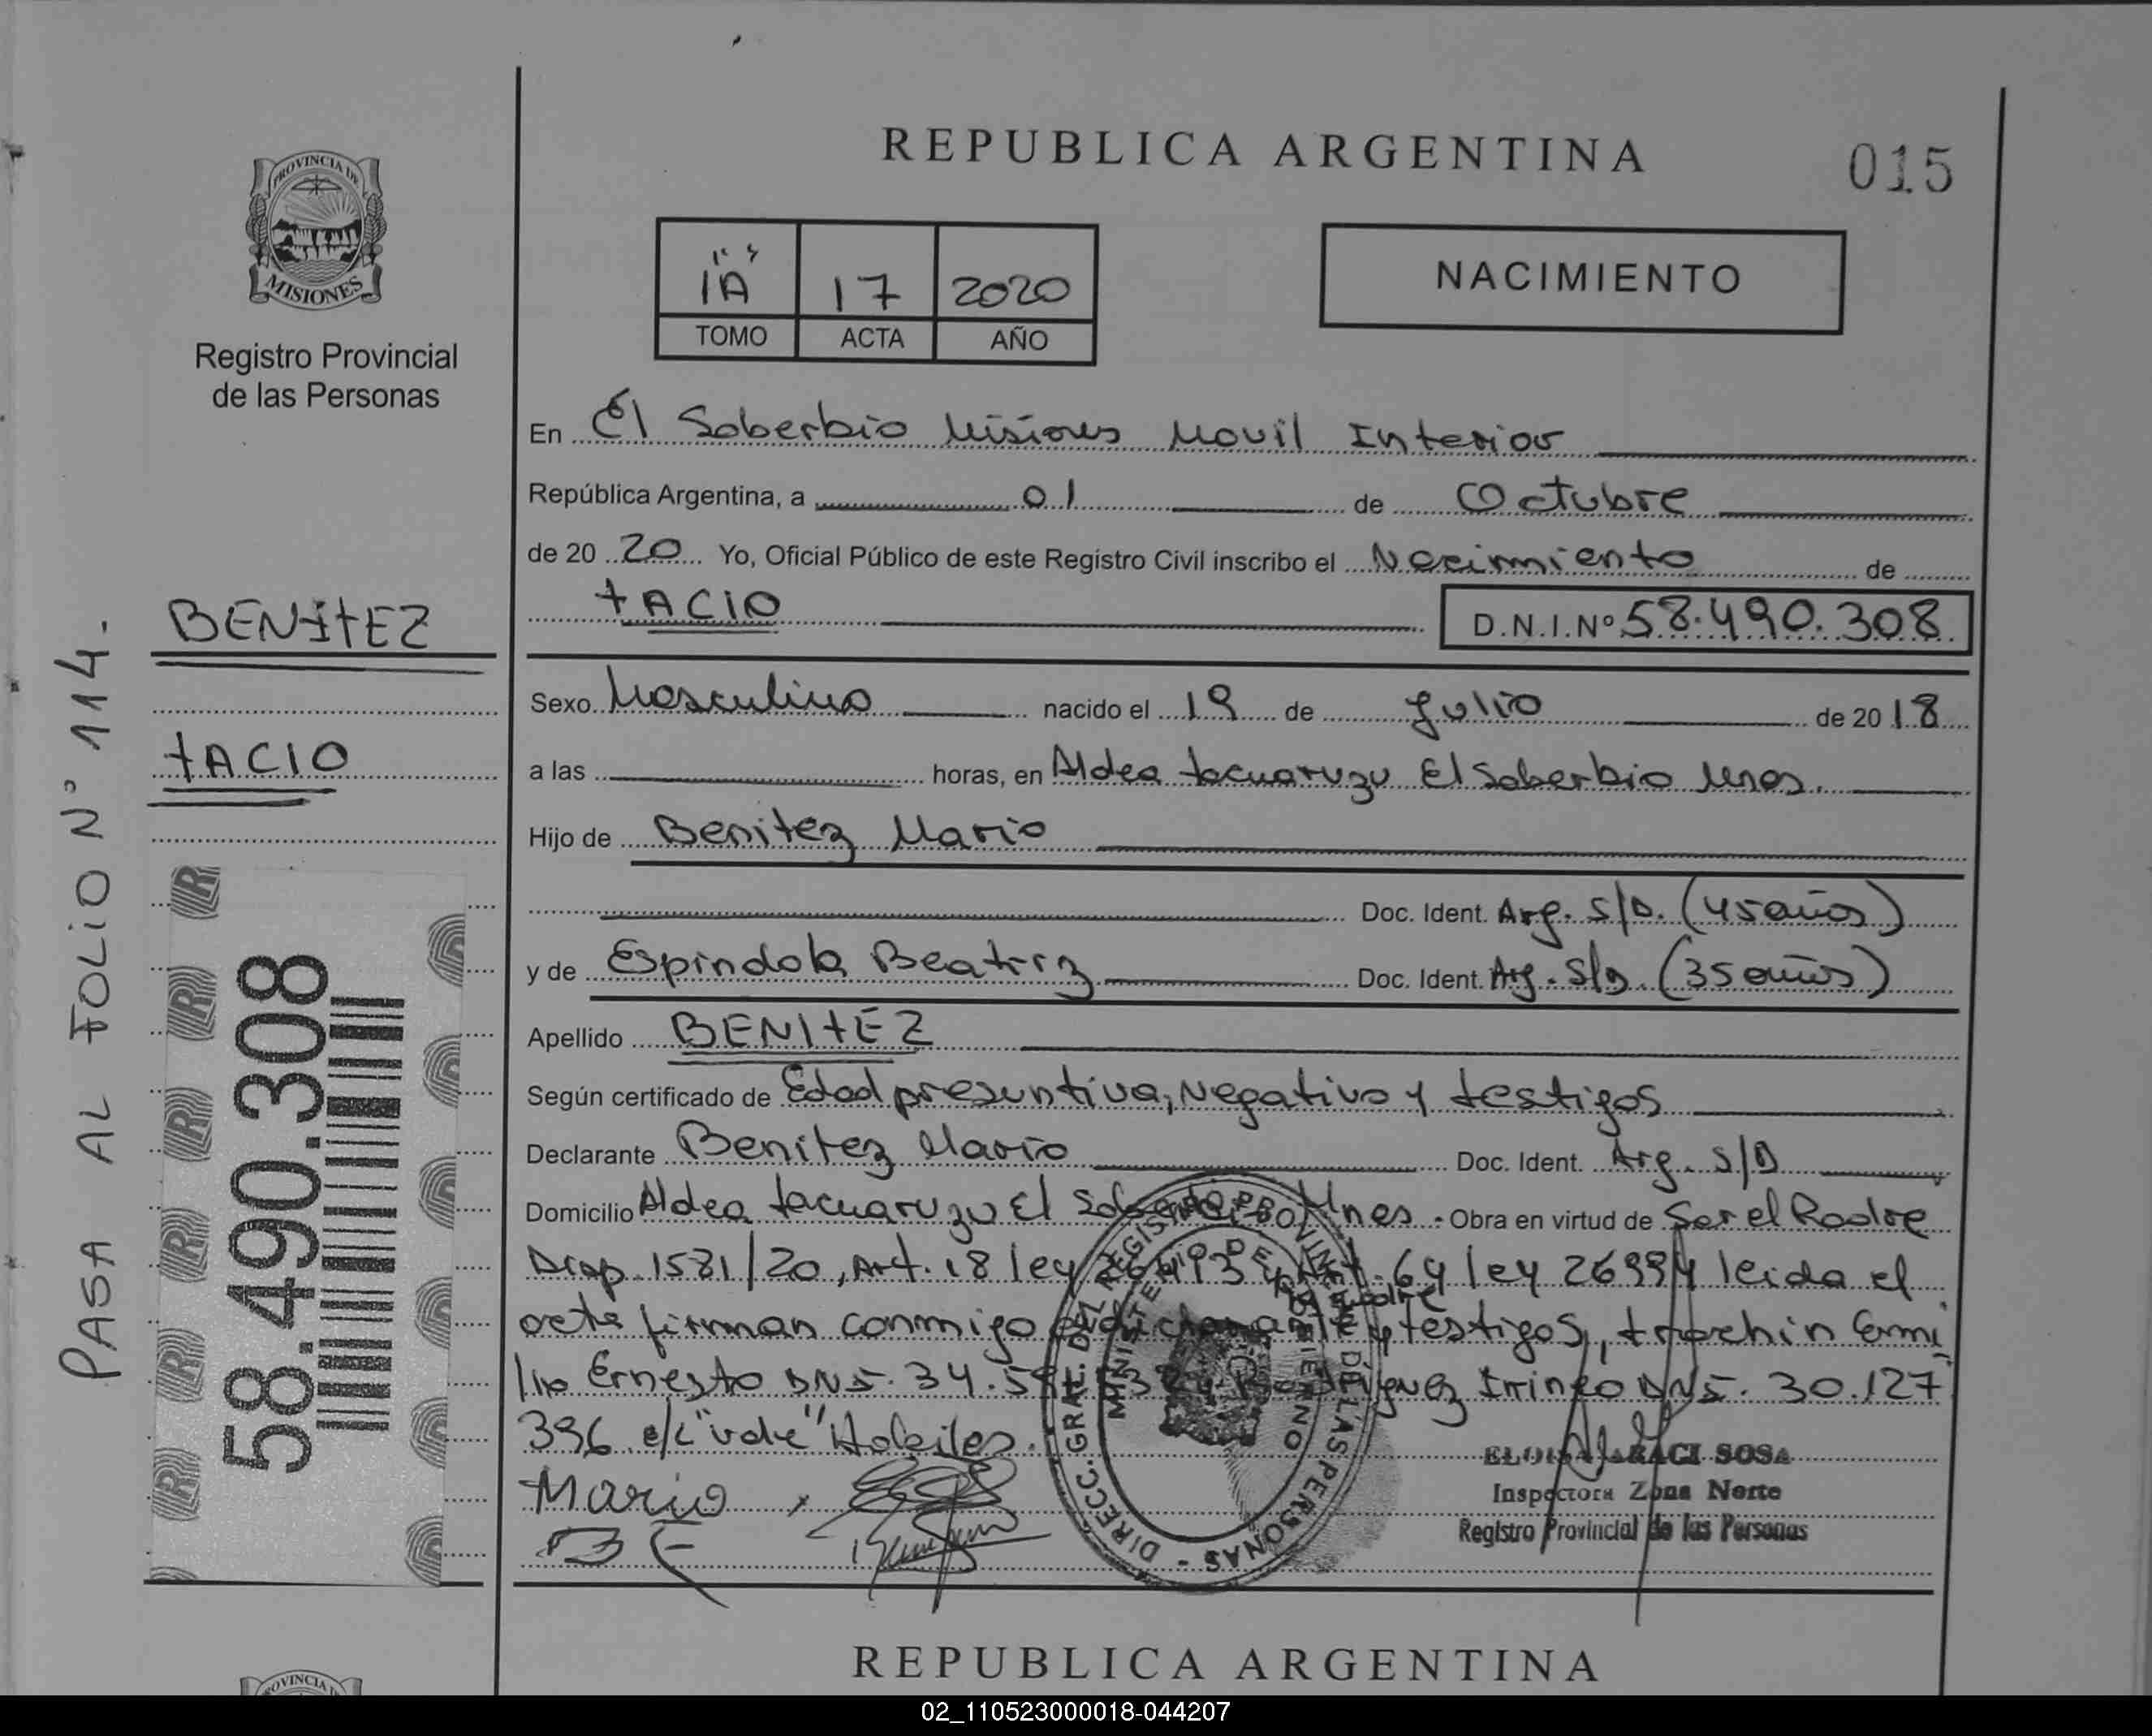 REPUBLICA ARGENTINA
015
PROVINCIA DE
MISIONES
Registro Provincial
de las Personas
"
IA 17 2020
TOMO ACTA AÑO
NACIMIENTO
En El Soberbio Misiones Movil Interior
República Argentina, a 01 de Octubre
de 20 20 Yo, Oficial Público de este Registro Civil inscribo el Nacimiento de
tACIO
D.N.I.Nº 58.490.308
BENITEZ
tACIO
PASA AL FOLIO N° 114.
58.490.308
Sexo Masculino nacido el 19 de Julio de 20 18
a las horas, en Aldea tacuaruzu El Soberbio Mnes.
Hijo de Benitez Mario
Doc. Ident. Arg. S/D. (45 años)
y de Espindola Beatriz Doc. Ident. Arg. S/D. (35 años)
Apellido BENItEZ
Según certificado de Edad presuntiva, Negativo y testigos
Declarante Benitez Mario Doc. Ident. Arg. S/D
Domicilio Aldea tacuaruzu El Soberbio Mnes. Obra en virtud de Ser el Padre
Disp. 1581/20, Art. 18 ley 26413 y Art. 64 ley 26994 leida el
la madre
acta firman conmigo y testigos, Ermi
lio Ernesto DNI. 34. Irineo DNI. 30.127
396 Habiles.
Mario
B E
DIRECC. GRAL. DEL REGISTRO PROVINCIAL DE LAS PERSONAS -
MINISTERIO DE GOBIERNO
ARACI SOSA
Inspectora Zona Norte
Registro Provincial de las Personas
REPUBLICA ARGENTINA
PROVINCIA
02_110523000018-044207